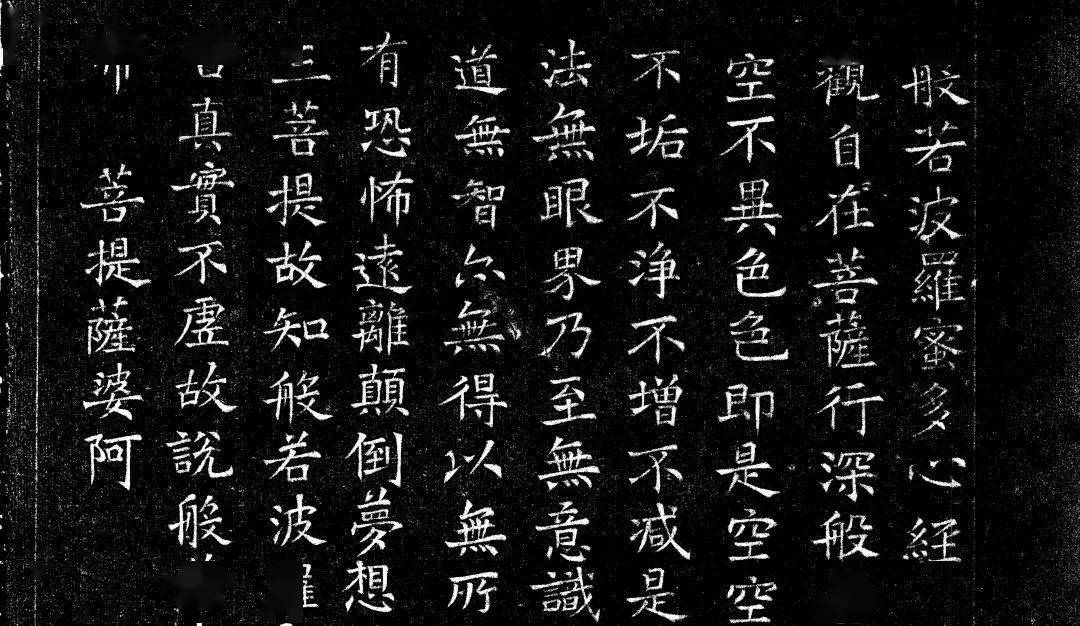 般若波羅蜜多心経
觀自在菩薩行深般
空不異色色即是空空
不垢不浄不增不减是
法無眼界乃至無意識
道無智亦無得以無所
有恐怖遠離顛倒夢想
三菩提故知般若波
真實不虛故說般
菩提薩婆阿